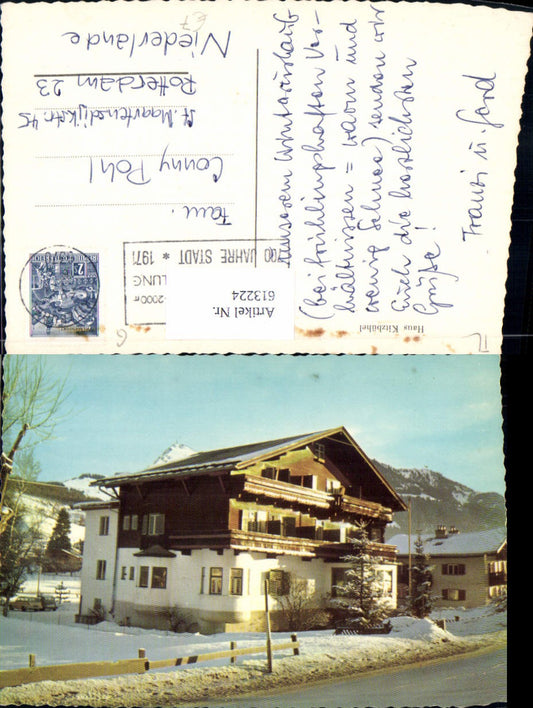 Fam.
Conny Pohl
St. Maartensdijkstr. 45
Rotterdam 23
Niederlande
unserem Winterurlaub
(bei frühlingshaften Ver-
hältnissen = warm und
wenig Schnee) senden wir
Euch die herzlichsten
Grüße!
Franzi u. Gerd
700 JAHRE STADT * 1971
LUNG
2000 m
REPUBLIK ÖSTERREICH
2
Artikel Nr.
613224
Haus Kitzbühel